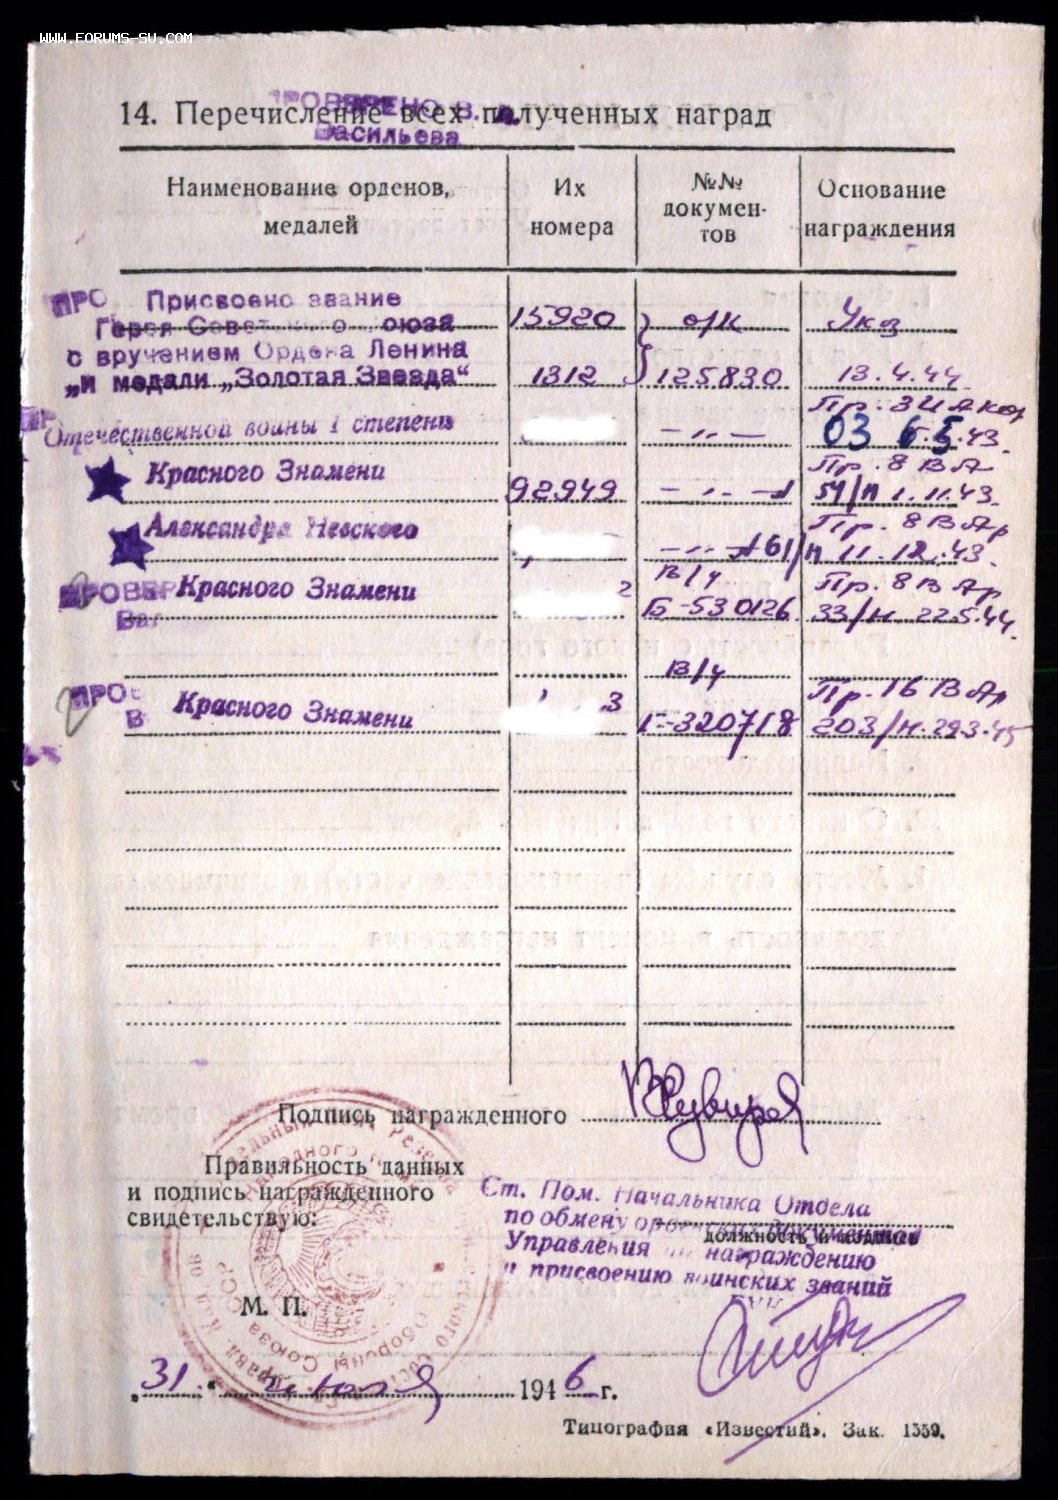 WWW.FORUMS-SU.COM
ПРОВЕРЕНО В.
Васильева
14. Перечисление всех полученных наград
Наименование орденов, медалей
Их номера
№№ докумен-тов
Основание награждения
ПРО Присвоено звание
Героя Советского Союза 15920 о/к Указ
с вручением Ордена Ленина
„и медали „Золотая Звезда“ 1312 125830 13.4.44
Пр. ЗИАкор
Отечественной войны I степени — „ — 03 6.5.43.
Красного Знамени Пр. 8 ВА
92949 — „ — 54/н 1.11.43.
Александра Невского Пр. 8 ВАр
— „ — 61/н 11.12.43.
ПРОВЕР Красного Знамени 2 в/ч Пр. 8 ВАр
Ваг Б-530126 33/н 22.5.44.
в/ч
ПРОВ Красного Знамени 3 Пр. 16 ВАр
В Г-320718 203/н. 29.3.45
Подпись награжденного
Правильность данных
и подпись награжденного
свидетельствую:
Ст. Пом. Начальника Отдела
по обмену орденских документов
должность и подпись
Управления по награждению
и присвоению воинских званий
М. П.
„31“ июля 1946 г.
Типография «Известий». Зак. 1559.